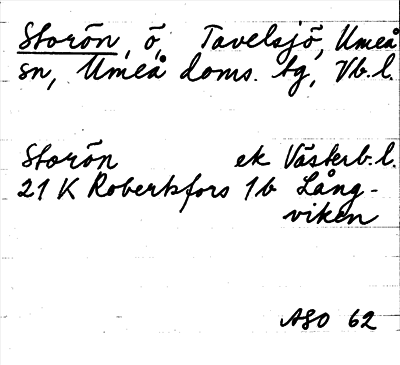 Storön, ö, Tavelsjö, Umeå
sn, Umeå doms. tg, Vb.l.
Storön ek Västerb.l.
21 K Robertsfors 1b Lång-
viken
ASO 62